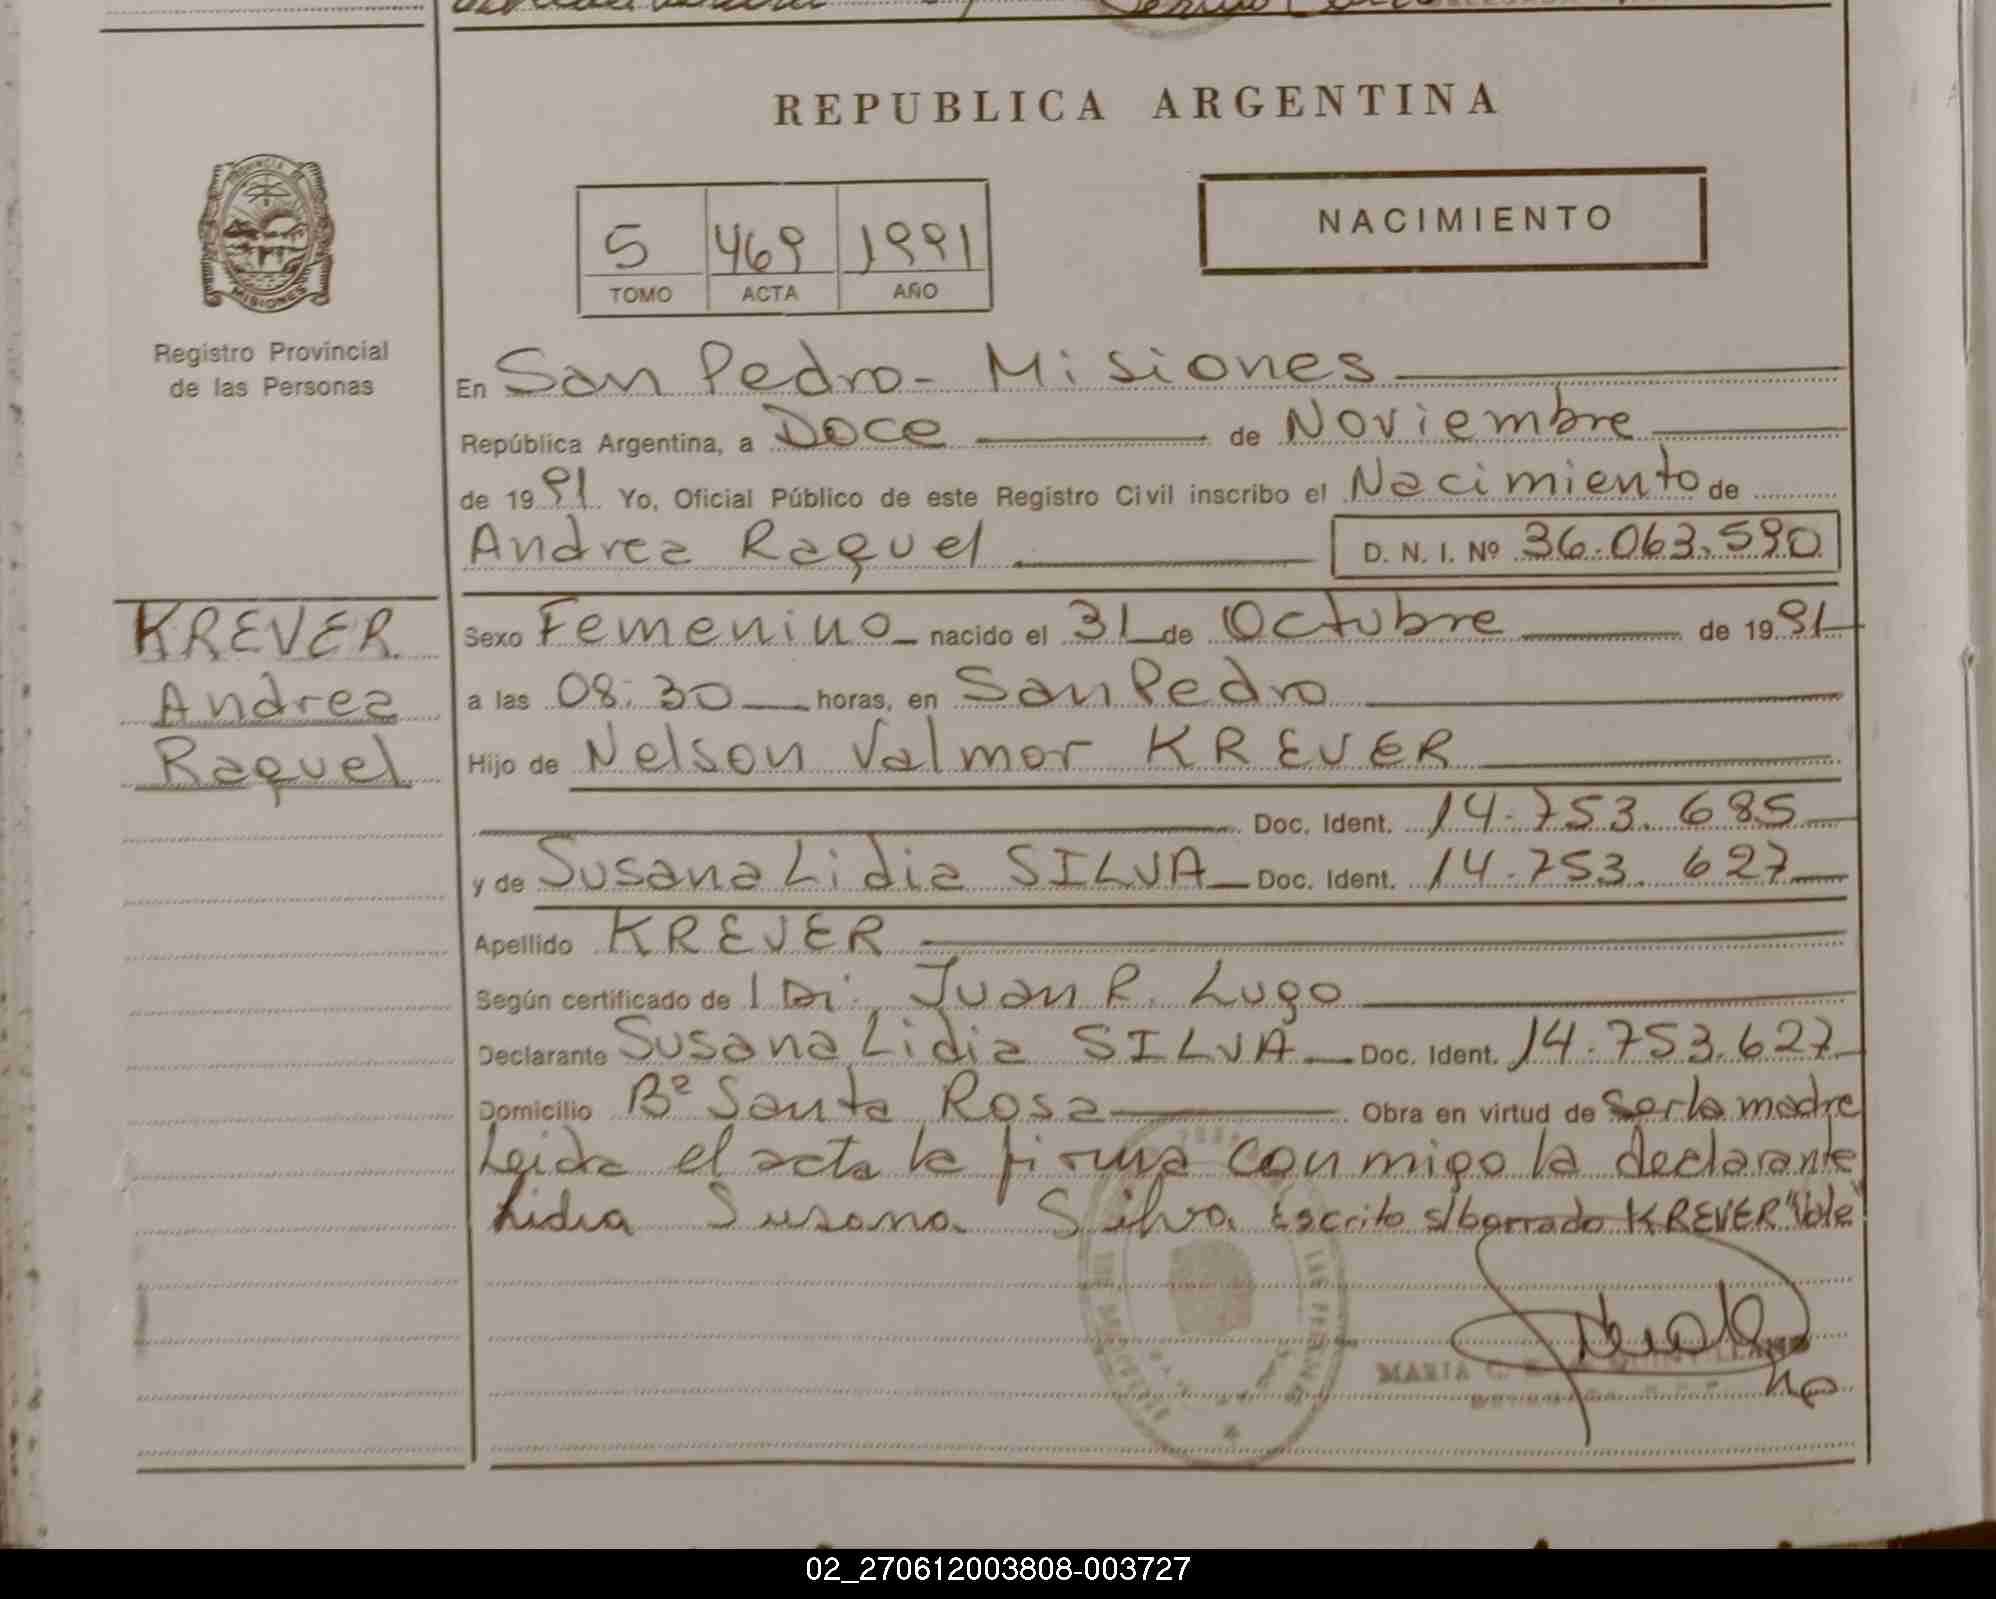 REPUBLICA ARGENTINA
PROVINCIA DE
MISIONES
Registro Provincial
de las Personas
5 469 1991
TOMO ACTA AÑO
NACIMIENTO
En San Pedro - Misiones
República Argentina, a Doce de Noviembre
de 1991 Yo, Oficial Público de este Registro Civil inscribo el Nacimiento de
Andrea Raquel D. N. I. Nº 36.063.590
KREVER
Andrea
Raquel
Sexo Femenino nacido el 31 de Octubre de 1991
a las 08:30 horas, en San Pedro
Hijo de Nelson Valmor KREVER
Doc. Ident. 14.753.685
y de Susana Lidia SILVA Doc. Ident. 14.753.627
Apellido KREVER
Según certificado de Juan R. Lugo
Declarante Susana Lidia SILVA Doc. Ident. 14.753.627
Domicilio Bº Santa Rosa Obra en virtud de ser la madre
Leida el acta la firma conmigo la declarante
Lidia Susana Silva Escrito s/borrado KREVER "Vale"
MARIA
02_270612003808-003727